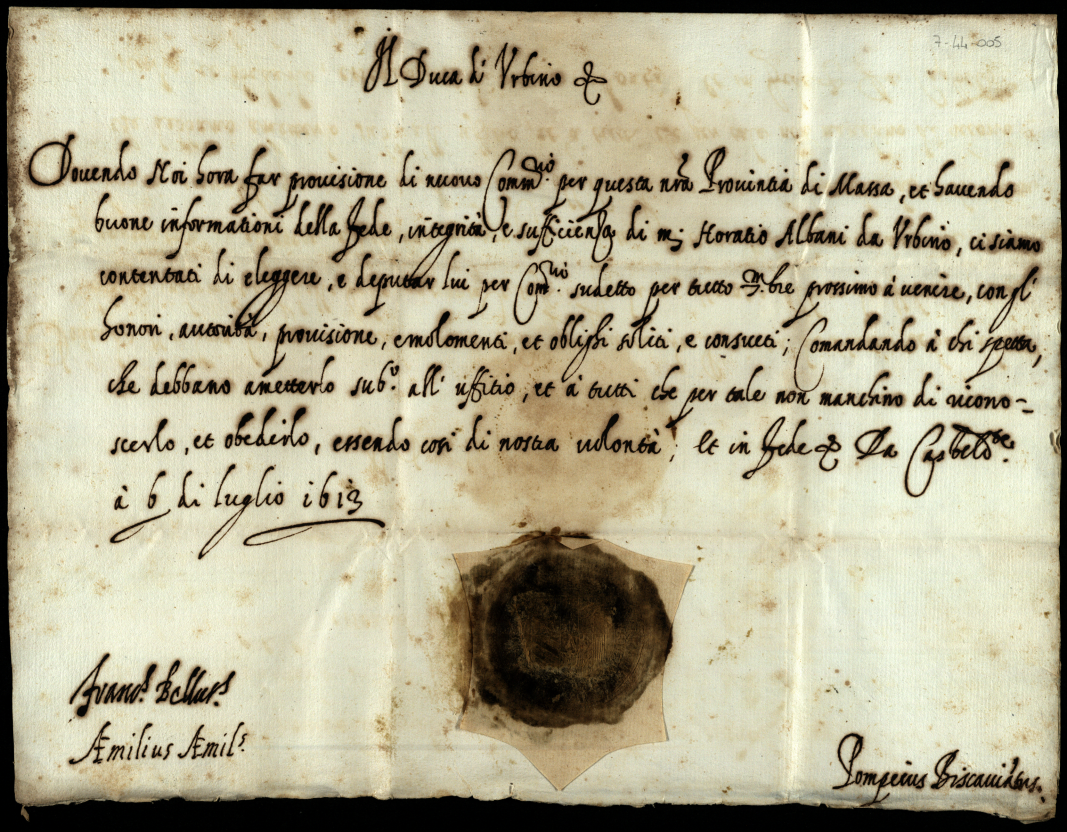 7-44-005
Il Duca di Urbino &
Dovendo Noi hora far provisione di nuovo Comm.rio per questa nr̃a Provintia di Massa, et havendo
buone informationi della fede, integrità, e sufficienza di m̃ Horatio Albani da Urbino, ci siamo
contentati di eleggere, e deputar lui per Com.rio sudetto per tutto bre prossimo à venire, con gl'
honori, autorità, provisione, emolomenti, et oblighi soliti, e consueti; Comandando à chi spetta,
che debbano ametterlo sub.o all' uffitio, et à tutti che per tale non manchino di ricono-
scerlo, et obedirlo, essendo così di nostra volontà; Et in fede & Da Casteld.te
à 6 di luglio 1613
Franc.s
Æmilius Æmil.s
Pompeius